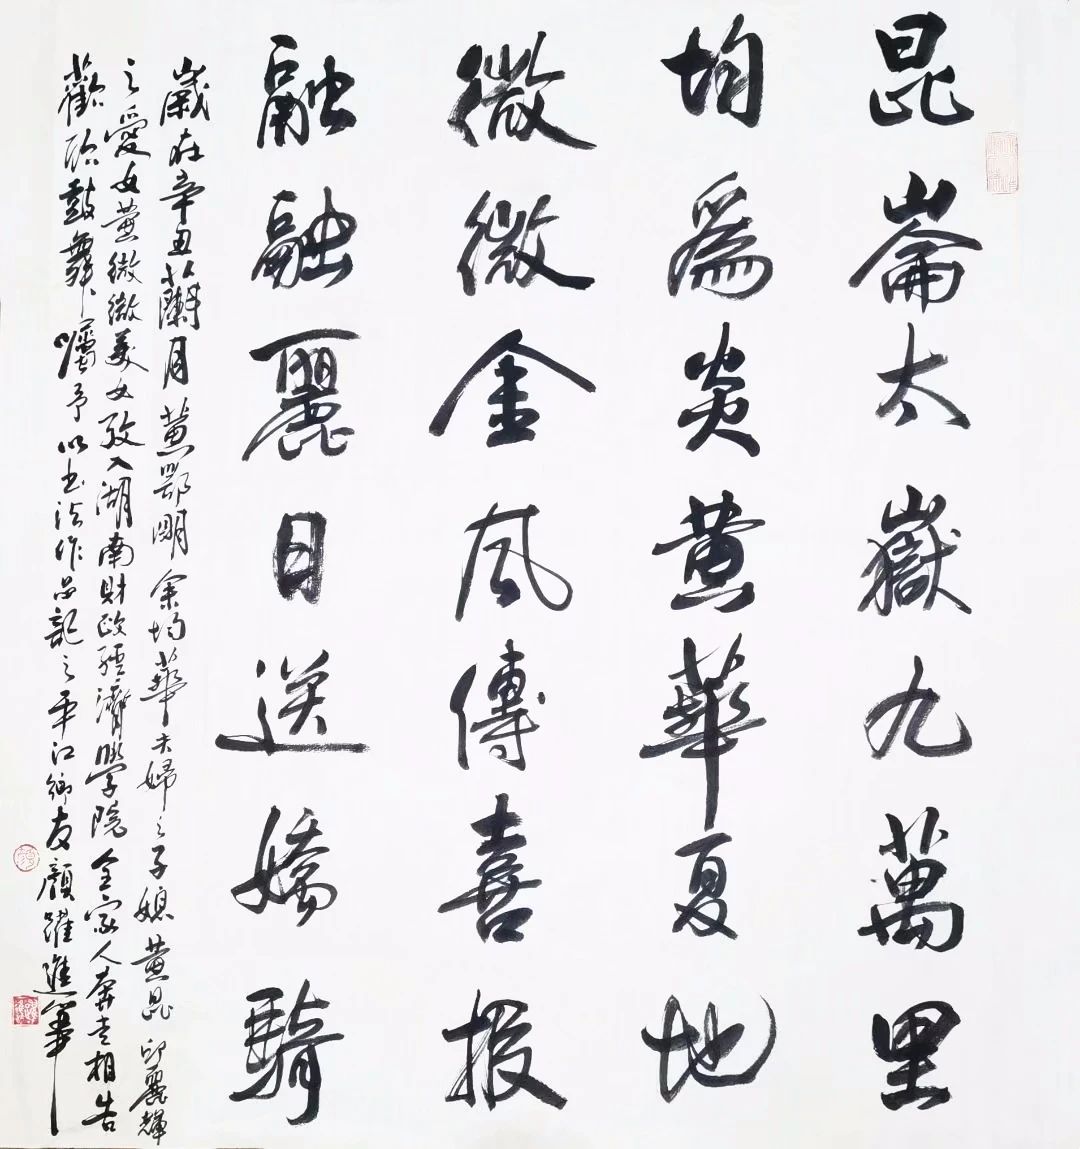 昆崙太嶽九萬里
均爲炎黄華夏地
微微金風傳喜報
融融麗日送嬌騎
歲在辛丑蘭月黄鄂明余均華夫婦之子媳黄昆印麗輝
之愛女黄微微美女攷入湖南財政經濟學院全家人奔走相告
歡欣鼓舞囑予以書法作品記之平江鄉友顔躍進筆